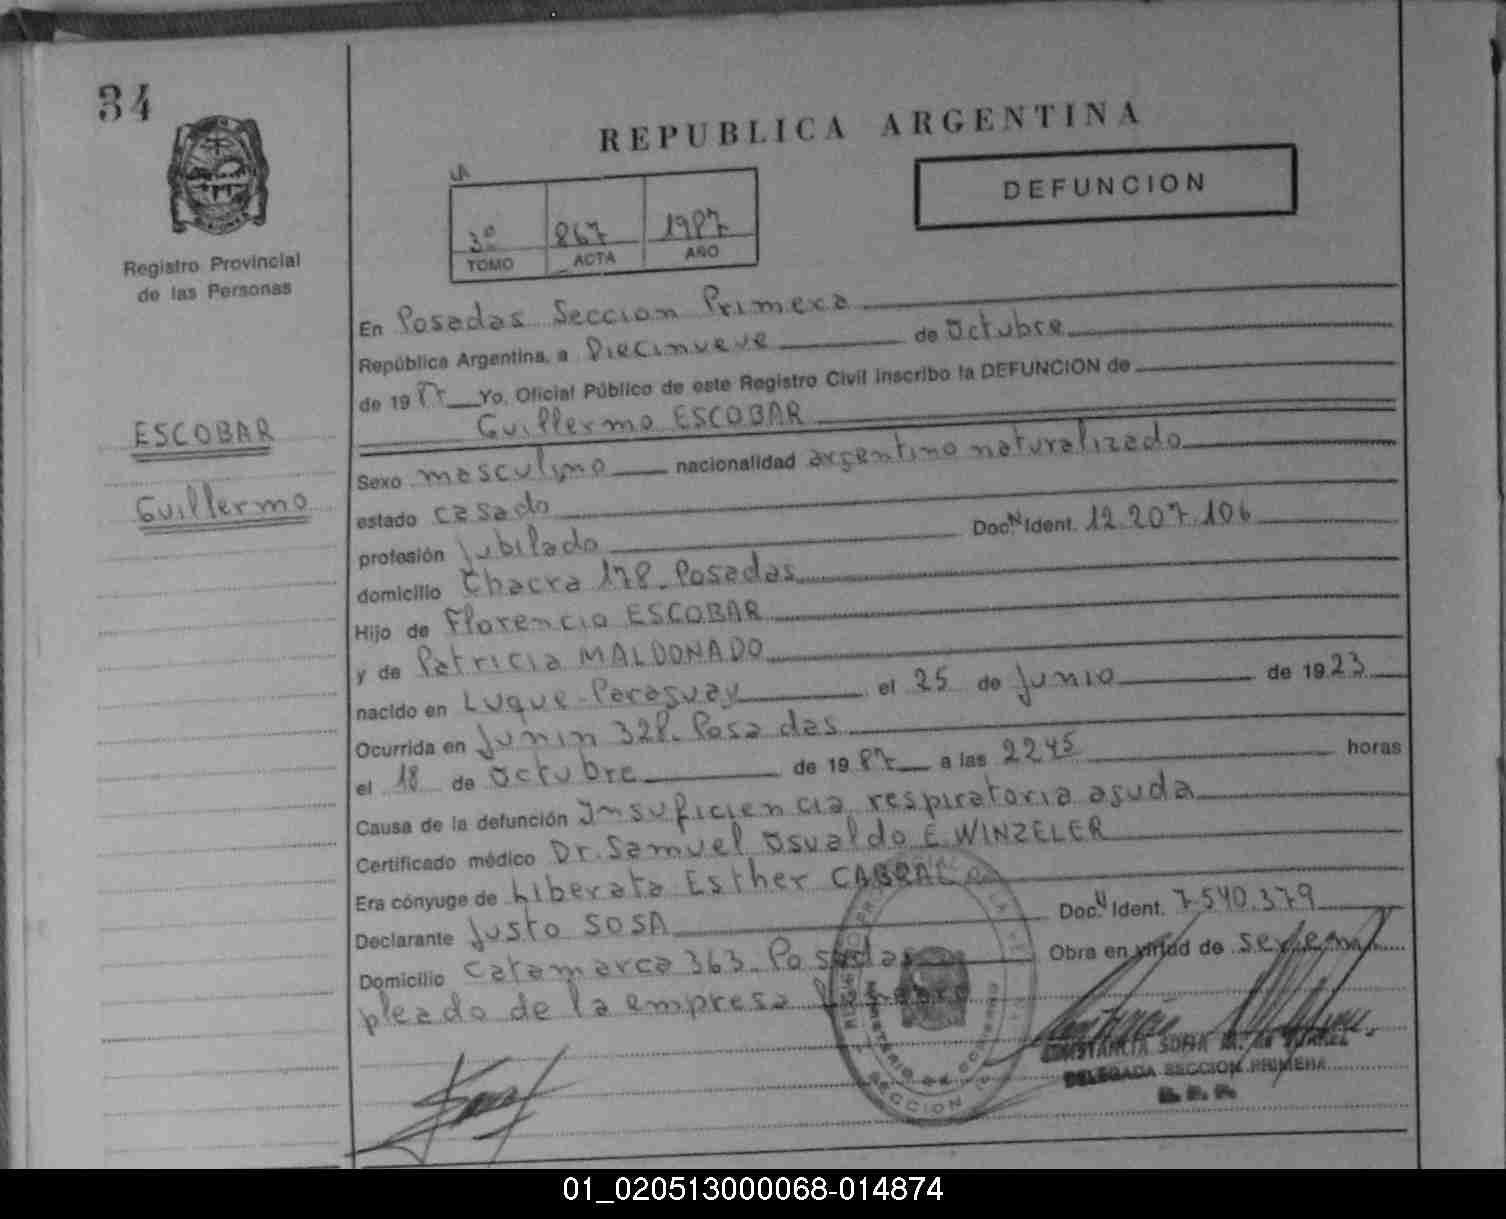 34
REPUBLICA ARGENTINA
DEFUNCION
3º 867 1987
TOMO ACTA AÑO
Registro Provincial
de las Personas
ESCOBAR
Guillermo
En Posadas Seccion Primera
República Argentina, a Diecinueve de Octubre
de 1987 Yo, Oficial Público de este Registro Civil inscribo la DEFUNCION de
Guillermo ESCOBAR
Sexo masculino nacionalidad argentino naturalizado
estado casado
profesión Jubilado Doc. N Ident. 12.207.106
domicilio Chacra 178. Posadas
Hijo de Florencio ESCOBAR
y de Patricia MALDONADO
nacido en Luque-Paraguay el 25 de Junio de 1923
Ocurrida en Junin 328. Posadas
el 18 de Octubre de 1987 a las 2245 horas
Causa de la defunción Insuficiencia respiratoria aguda
Certificado médico Dr. Samuel Osvaldo E. WINZELER
Era cónyuge de Liberata Esther CABRAL
Declarante Justo SOSA Doc. N Ident. 7.540.379
Domicilio Catamarca 363. Posadas Obra en virtud de ser em
pleado de la empresa
CONSTANCIA SOFIA M. de
DELEGADA SECCION PRIMERA
01_020513000068-014874